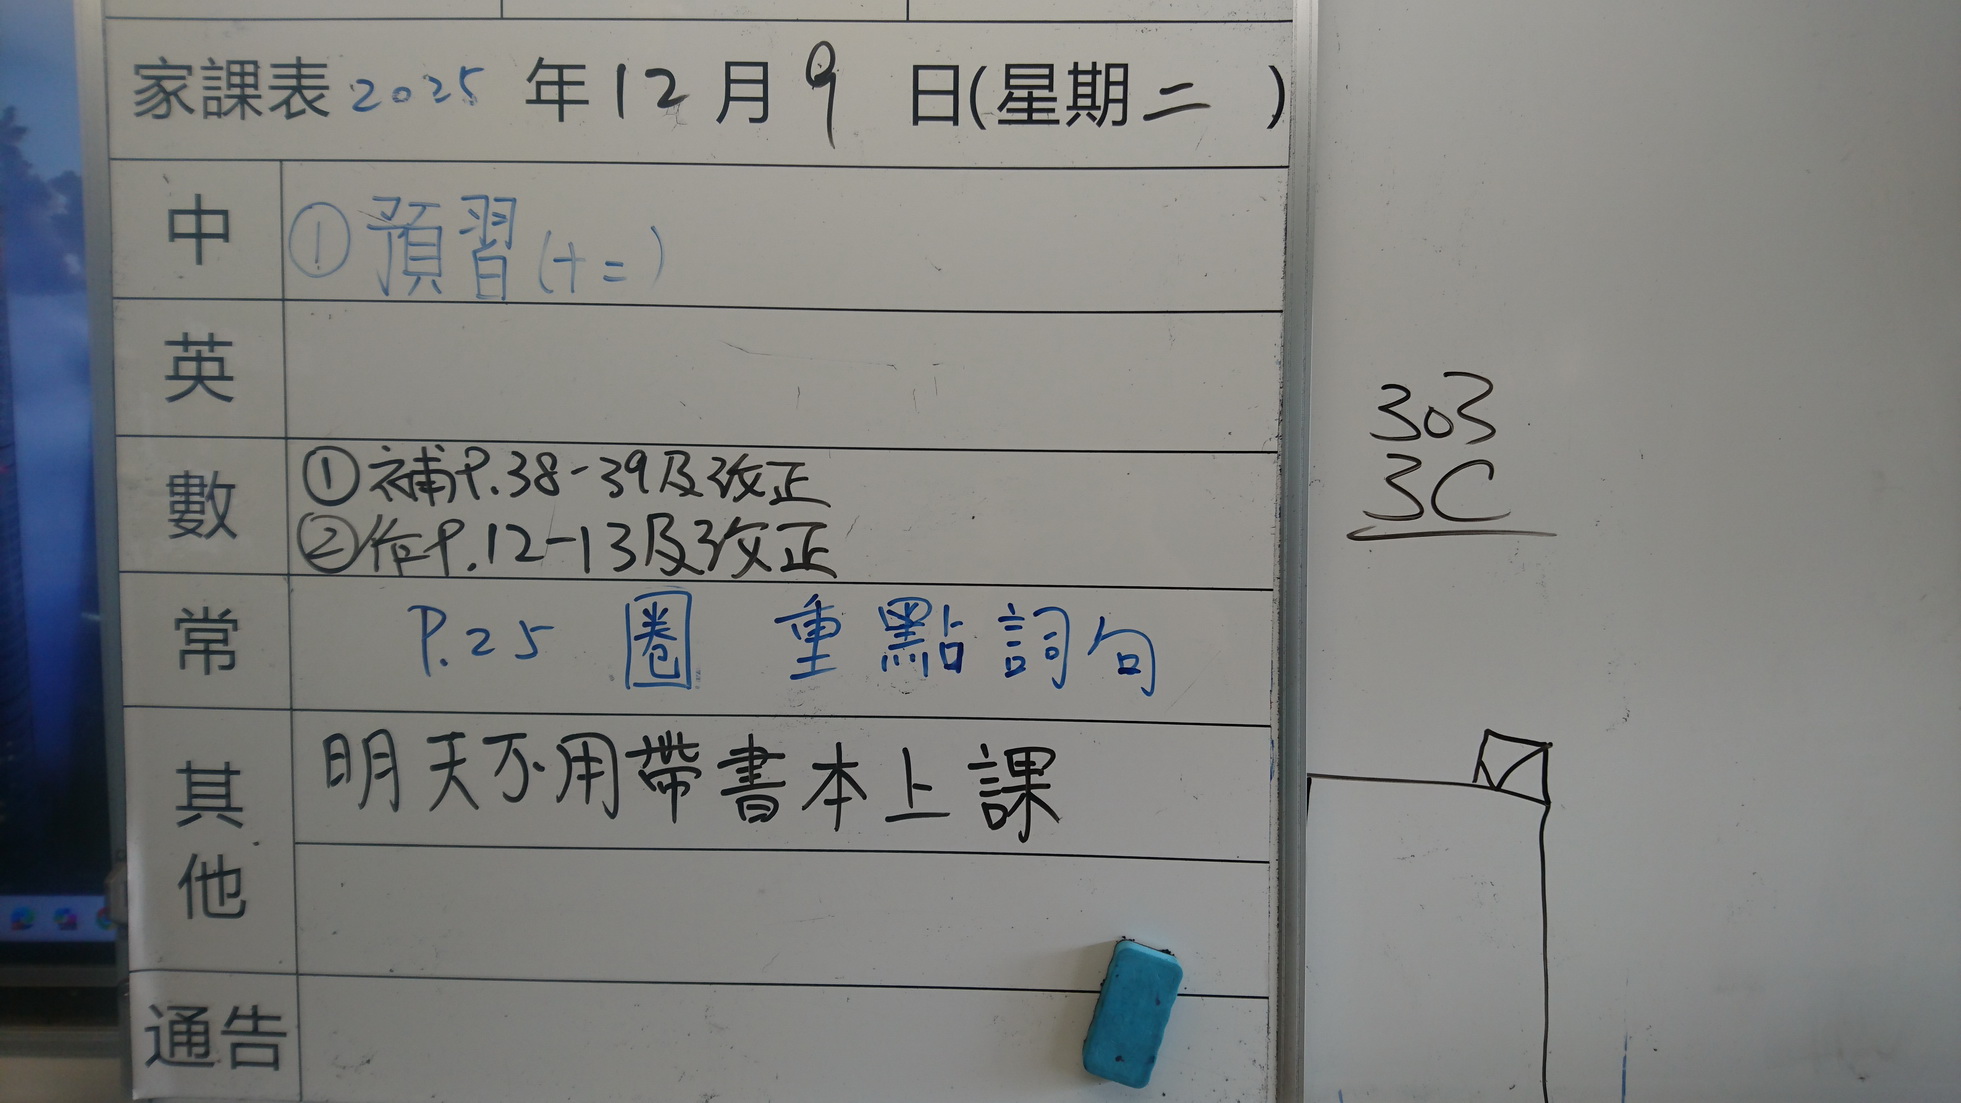 家課表 2025 年 12 月 9 日(星期二 )
中 ① 預習(十二)
英
數 ① 補P.38-39及改正
② 作P.12-13及改正
常 P.25 圈 重點詞句
其他 明天不用帶書本上課
通告
303
3C